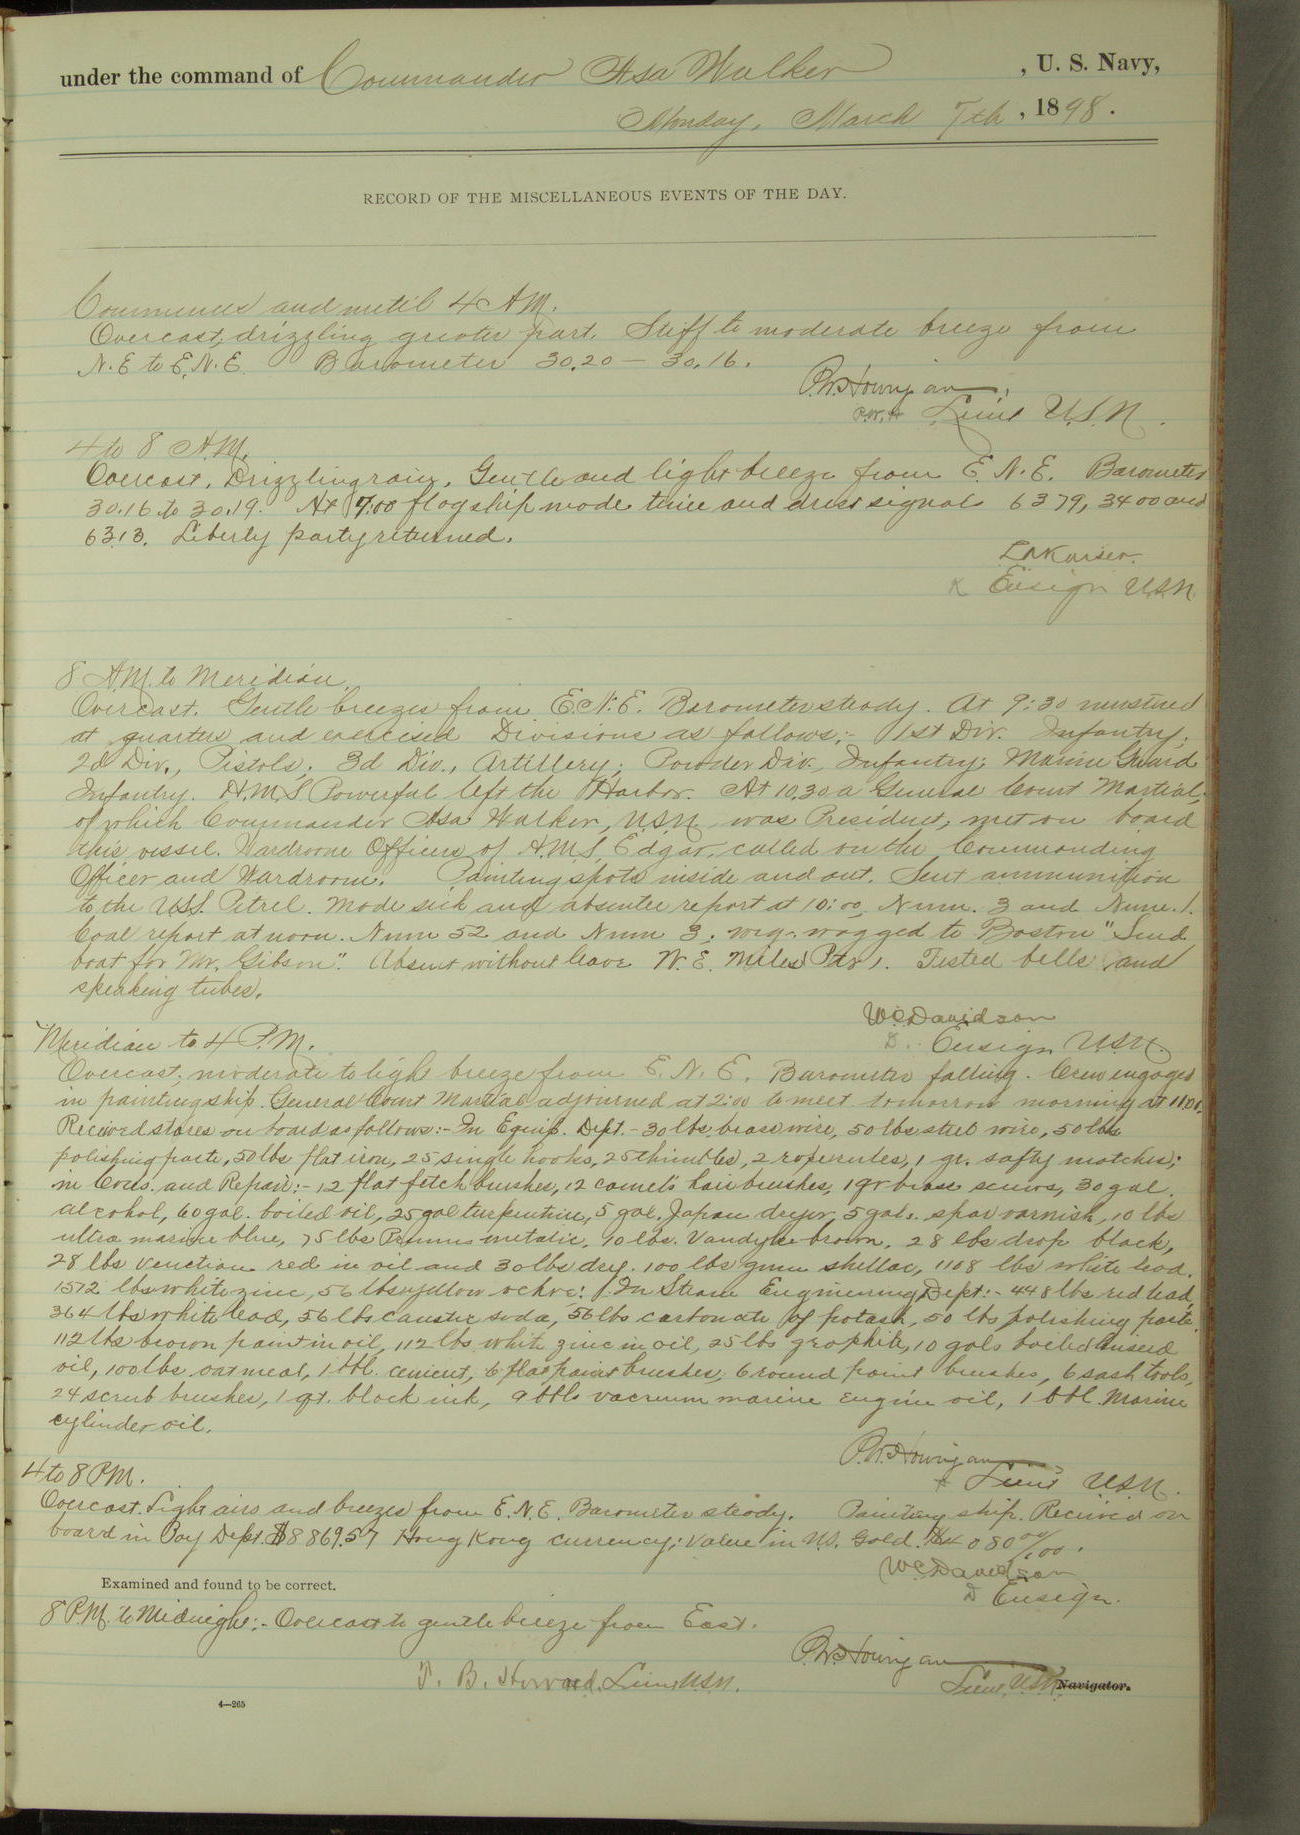 under the command of Commander Asa Walker, U. S. Navy,
Monday, March 7th, 1898.
RECORD OF THE MISCELLANEOUS EVENTS OF THE DAY.
Commences and until 4 A.M.
Overcast, drizzling greater part. Stiff to moderate breeze from
N.E to E.N.E. Barometer 30.20 — 30.16.
P.W. Hourigan
P.W.H Lieut U.S.N.
4 to 8 A.M.
Overcast, Drizzling rain, Gentle and light breeze from E.N.E. Barometer
30.16 to 30.19. At 7:00 flagship made time and dress signals 6379, 3400 and
6313. Liberty party returned.
L A Kaiser
K Ensign USN
8 A.M. to Meridian.
Overcast. Gentle breezes from E.N.E. Barometer steady. At 9:30 mustered
at quarters and exercised Divisions as follows:- 1st Div. Infantry;
2d Div., Pistols; 3d Div., Artillery; Powder Div. Infantry; Marine Guard
Infantry. H.M.S Powerful left the Harbor. At 10.30 a General Court Martial,
of which Commander Asa Walker, USN was President, met on board
this vessel. Wardroom Officers of H.M.S. Edgar, called on the Commanding
Officer and Wardroom. Painting spots inside and out. Sent ammunition
to the U.S.S. Petrel. Made sick and absentee report at 10:00, Num. 3 and Num. 1.
Coal report at noon. Num 52 and Num 3; wig-wagged to Boston "Send
boat for Mr. Gibson". Absent without leave W. E. Miles Ptr 1. Tested bells and
speaking tubes.
W C Davidson
D. Ensign USN.
Meridian to 4 P.M.
Overcast; moderate to light breeze from E.N.E. Barometer falling. Crew engaged
in painting ship. General Court Martial adjourned at 2:00 to meet tomorrow morning at
Received stores on board as follows:- In Equip. Dept.- 30 lbs brass wire, 50 lbs steel wire, 50 lbs
polishing paste, 50 lbs flat iron, 25 single hooks, 25 thimbles, 2 1 gr. safty matches;
in Cons. and Repair:- 12 flat fetch brushes, 12 camel's hair brushes, 1 gr brass screws, 30 gal.
alcohol, 60 gal. boiled oil, 25 gal turpentine, 5 gal. Japan dryer, 5 gals. spar varnish, 10 lbs
ultra marine blue, 75 lbs metalic, 10 lbs. Vandyke brown, 28 lbs drop black,
28 lbs venetian red in oil and 30 lbs dry. 100 lbs gum shellac, 1108 lbs white lead.
1572 lbs white zinc, 56 lbs yellow ochre: In Steam Engineering Dept:- 448 lbs red lead,
364 lbs white lead, 56 lbs caustic soda, 56 lbs carbonate of potash, 50 lbs polishing paste,
112 lbs brown paint in oil, 112 lbs white zinc in oil, 25 lbs graphite, 10 gals boiled linseed
oil, 100 lbs oatmeal, 1 bbl. cement, 6 flat paint brushes, 6 round paint brushes, 6 sash tools,
24 scrub brushes, 1 qt. black ink, 9 bbls vacuum marine engine oil, 1 bbl. Marine
cylinder oil.
P.W. Hourigan
H Lieut U.S.N.
4 to 8 P.M.
Overcast. Light airs and breezes from E.N.E. Barometer steady. Painting ship. Received on
board in Pay Dept. $8869.57 Hong Kong currency; value in U.S. Gold. $4080 00/100.
W C Davidson
D Ensign.
Examined and found to be correct.
8 P.M. to Midnight:- Overcast to gentle breeze from East.
P.W. Hourigan
T. B. Howard, Lieut U.S.N.
Lieut, U.S.N. Navigator.
4—265